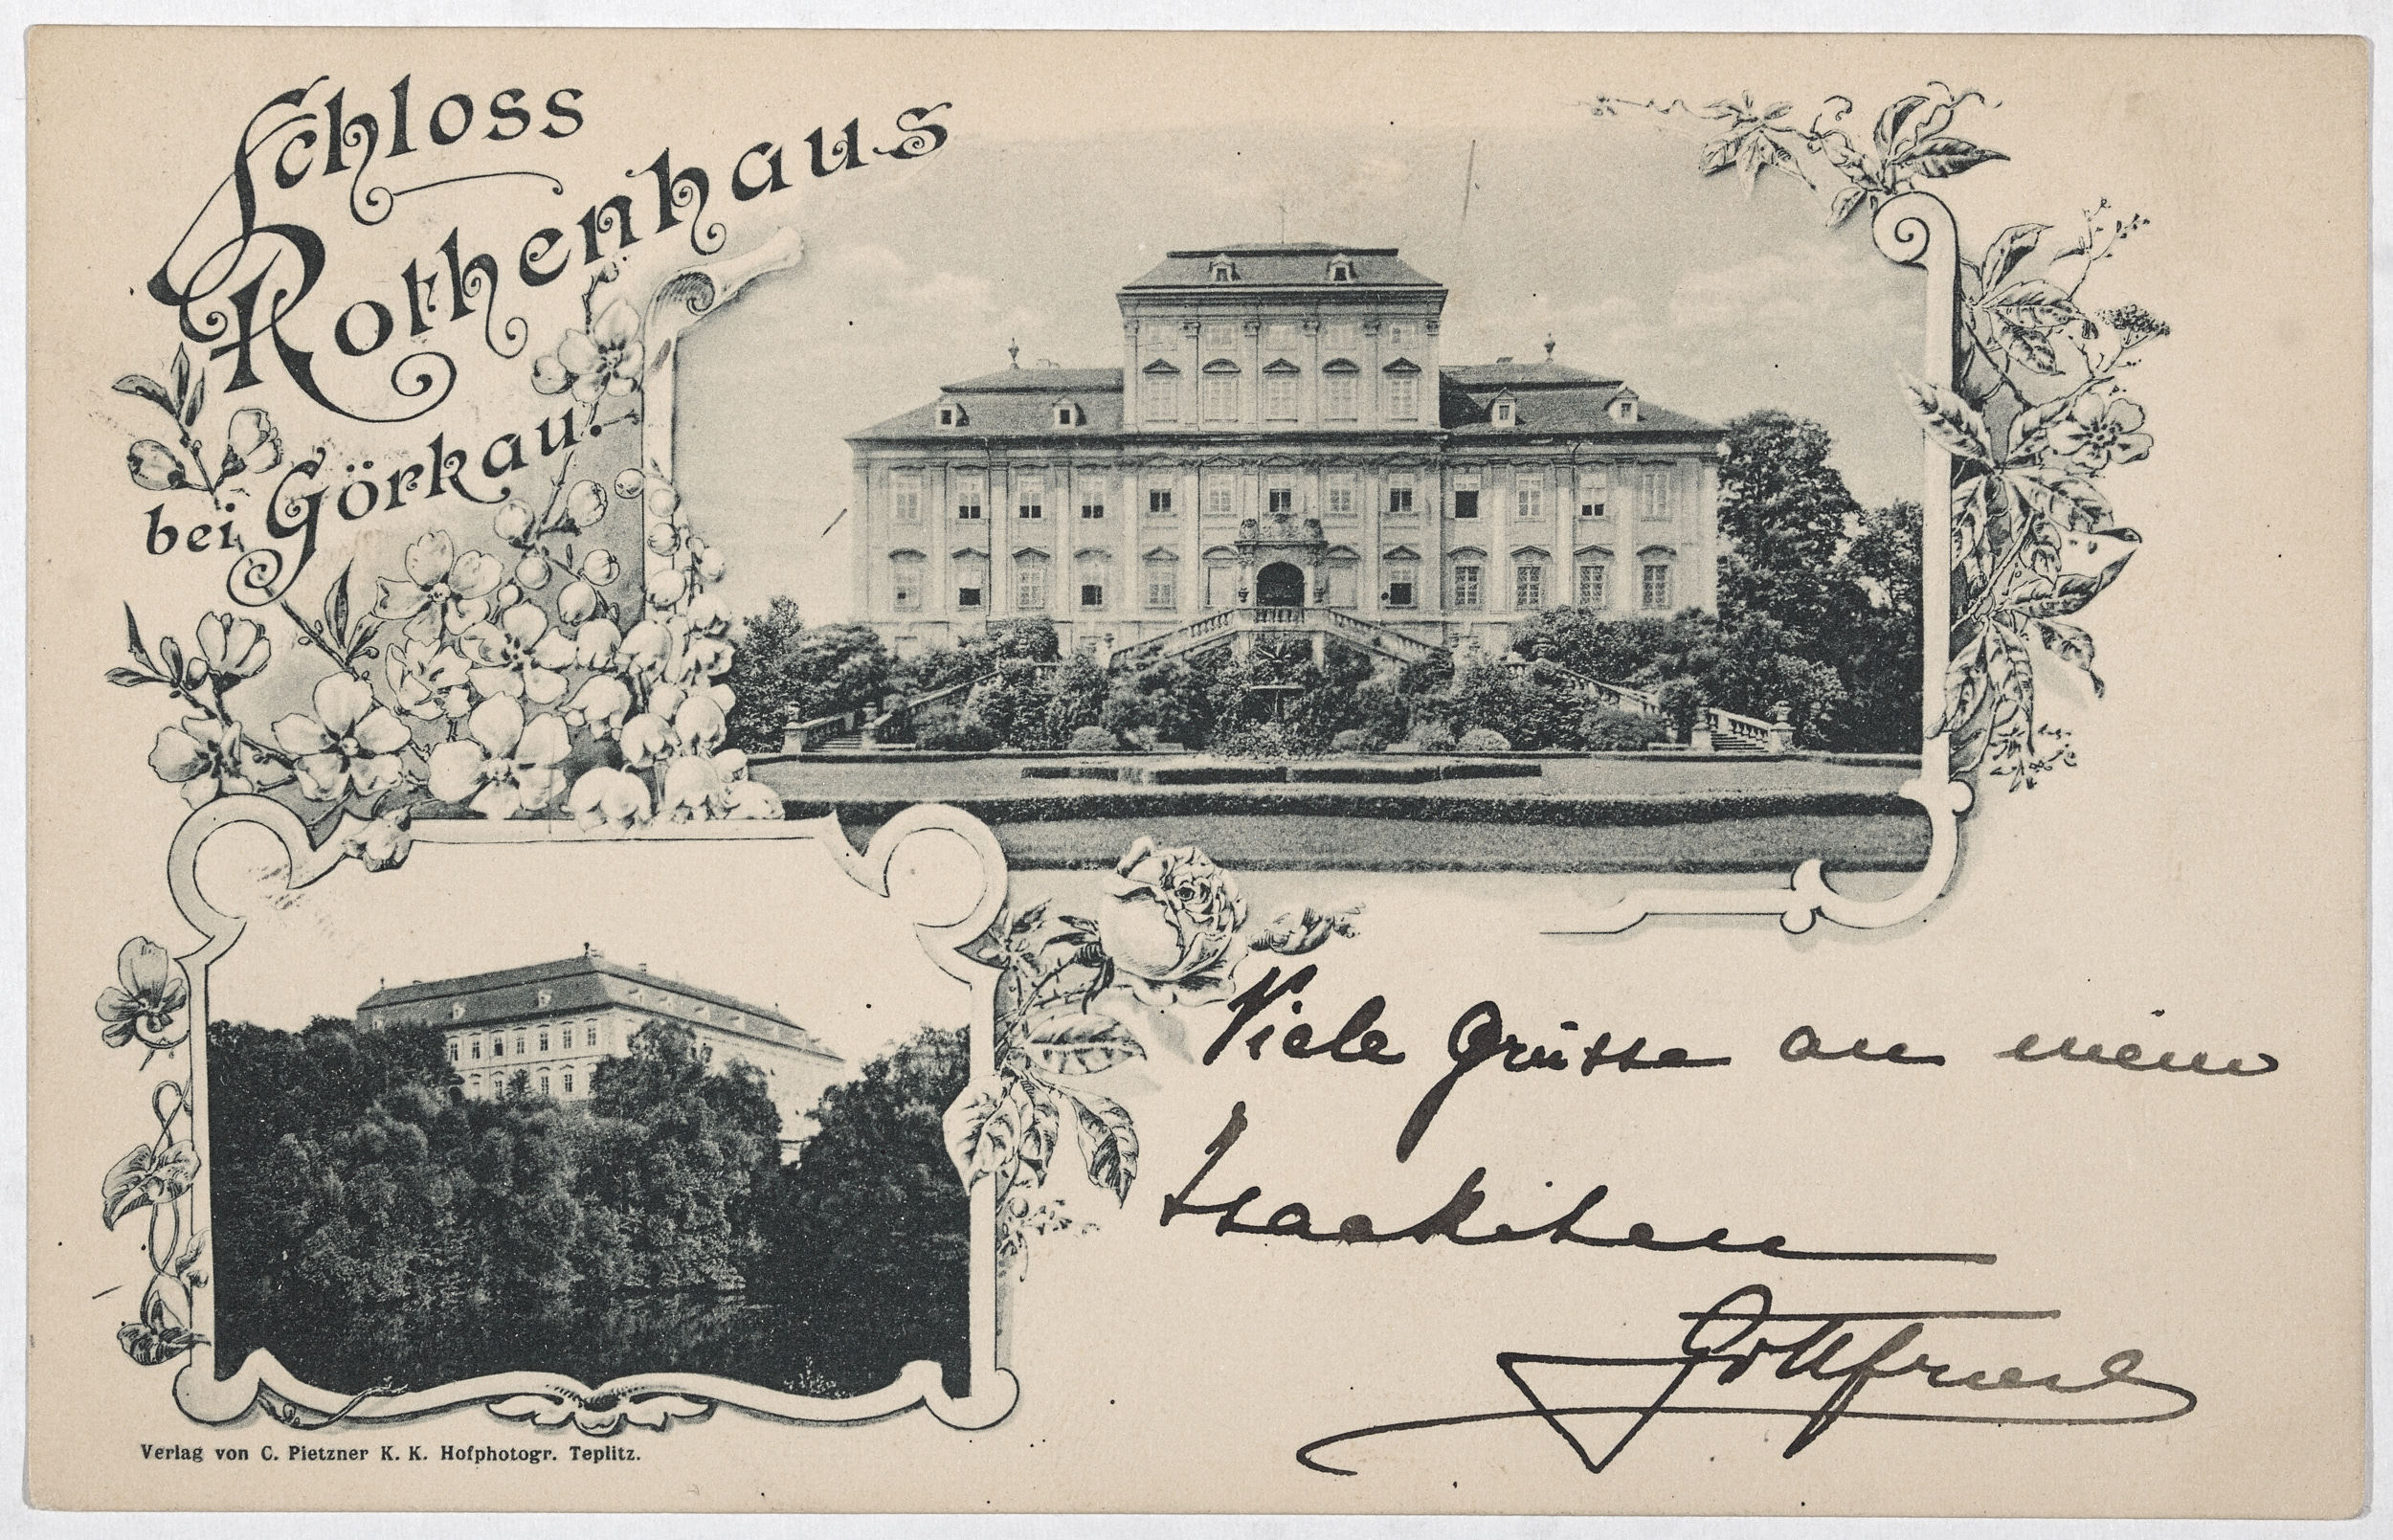 Schloss
Rothenhaus
bei Görkau.
Viele Grüsse an mein
Gottfried
Verlag von C. Pietzner K. K. Hofphotogr. Teplitz.